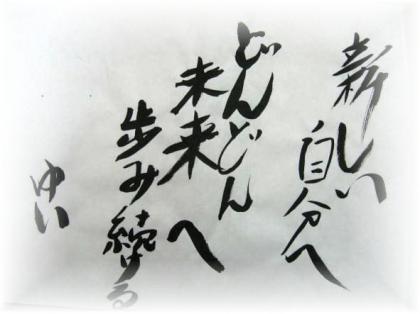 新しい
自分へ
どんどん
未来へ
歩み続ける
ゆい